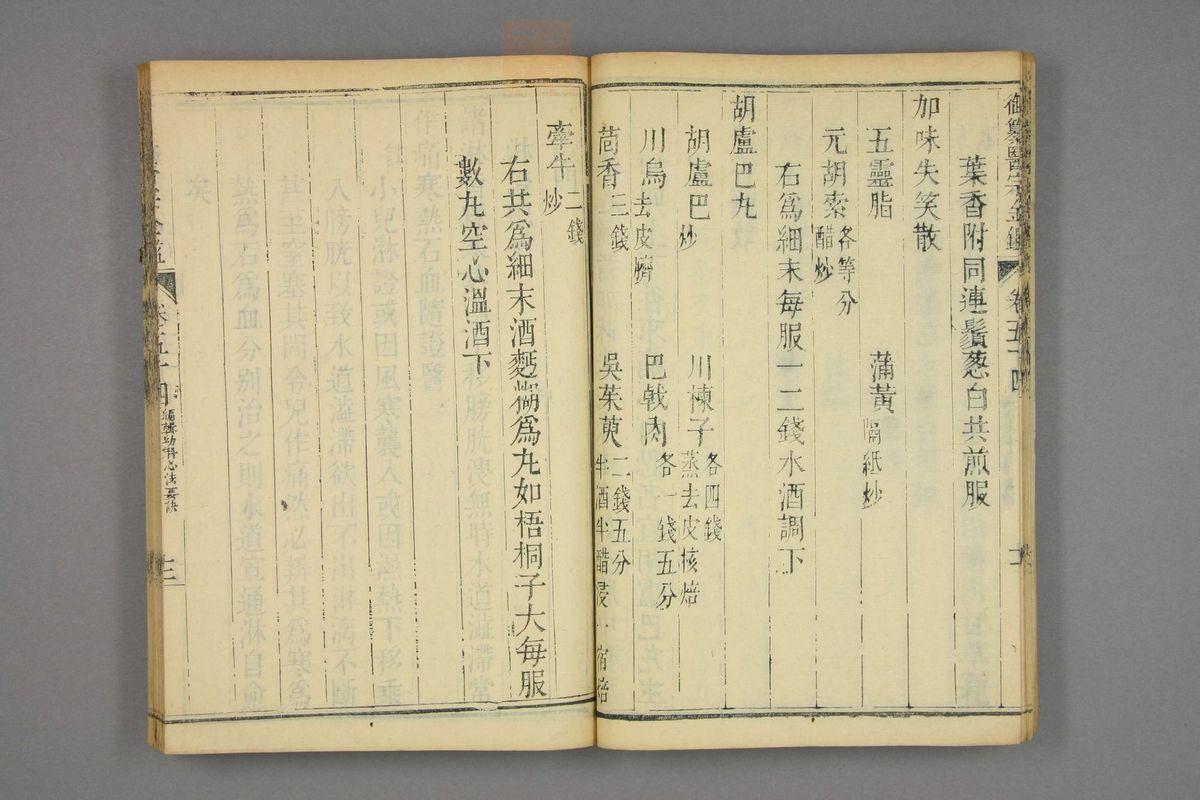 御纂醫宗金鑑 卷五十四
葉香附同連鬚葱白共煎服
加味失笑散
五靈脂 蒲黃隔紙炒
元胡索各等分醋炒
右爲細末每服一二錢水酒調下
胡盧巴丸
胡盧巴炒 川楝子各四錢蒸去皮核焙
川烏去皮臍 巴戟肉各一錢五分
茴香三錢 吳茱萸二錢五分半酒半醋浸一宿焙
牽牛二錢炒
右共爲細末酒麪糊爲丸如梧桐子大每服
數丸空心溫酒下
卷五十四
編輯幼科心法要訣